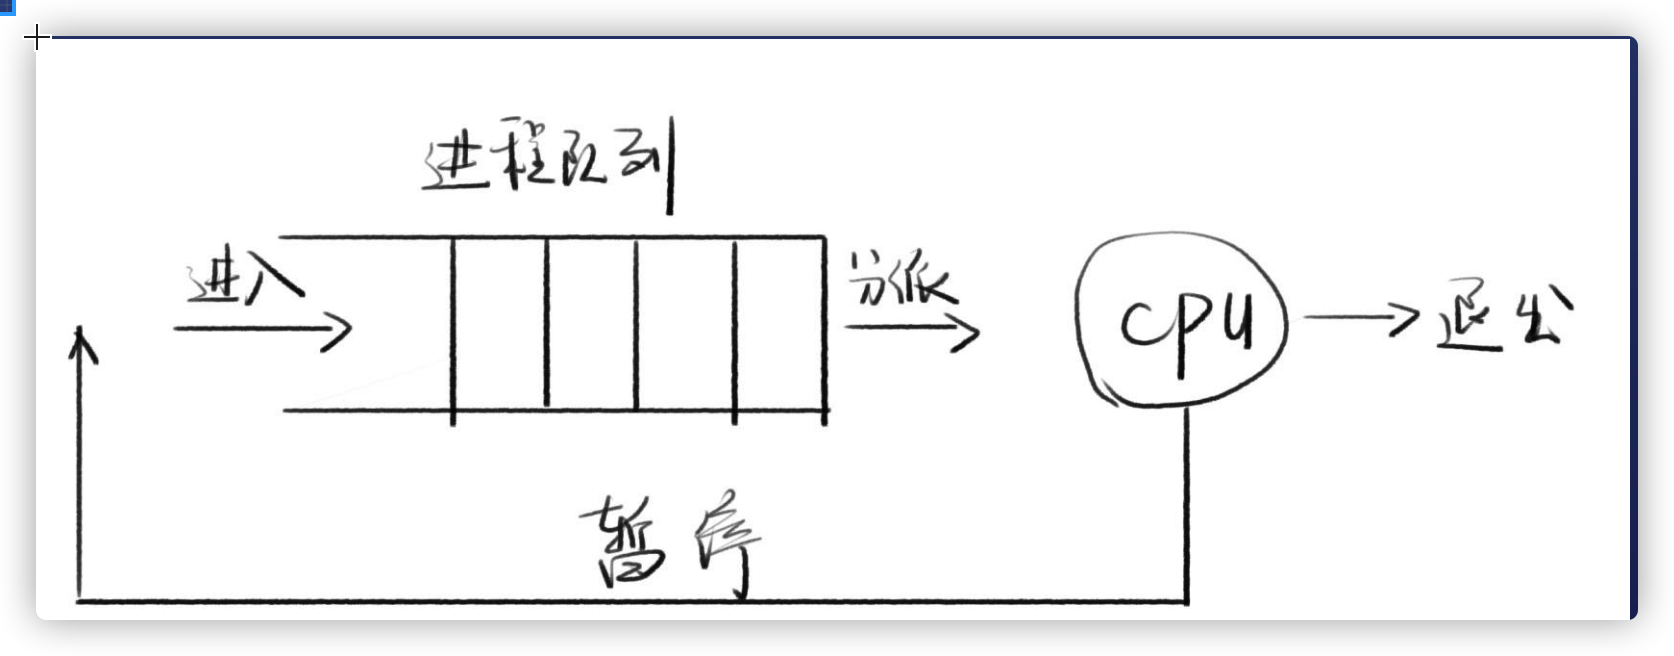 进程队列
进入
分派
CPU
退出
暂停